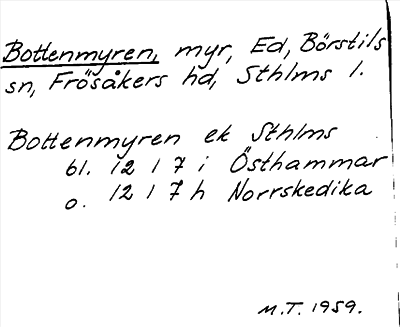 Bottenmyren, myr, Ed, Börstils
sn, Frösåkers hd, Sthlms l.
Bottenmyren ek Sthlms
bl. 12 1 7 i Östhammar
o. 12 1 7 h Norrskedika
M.T. 1959.